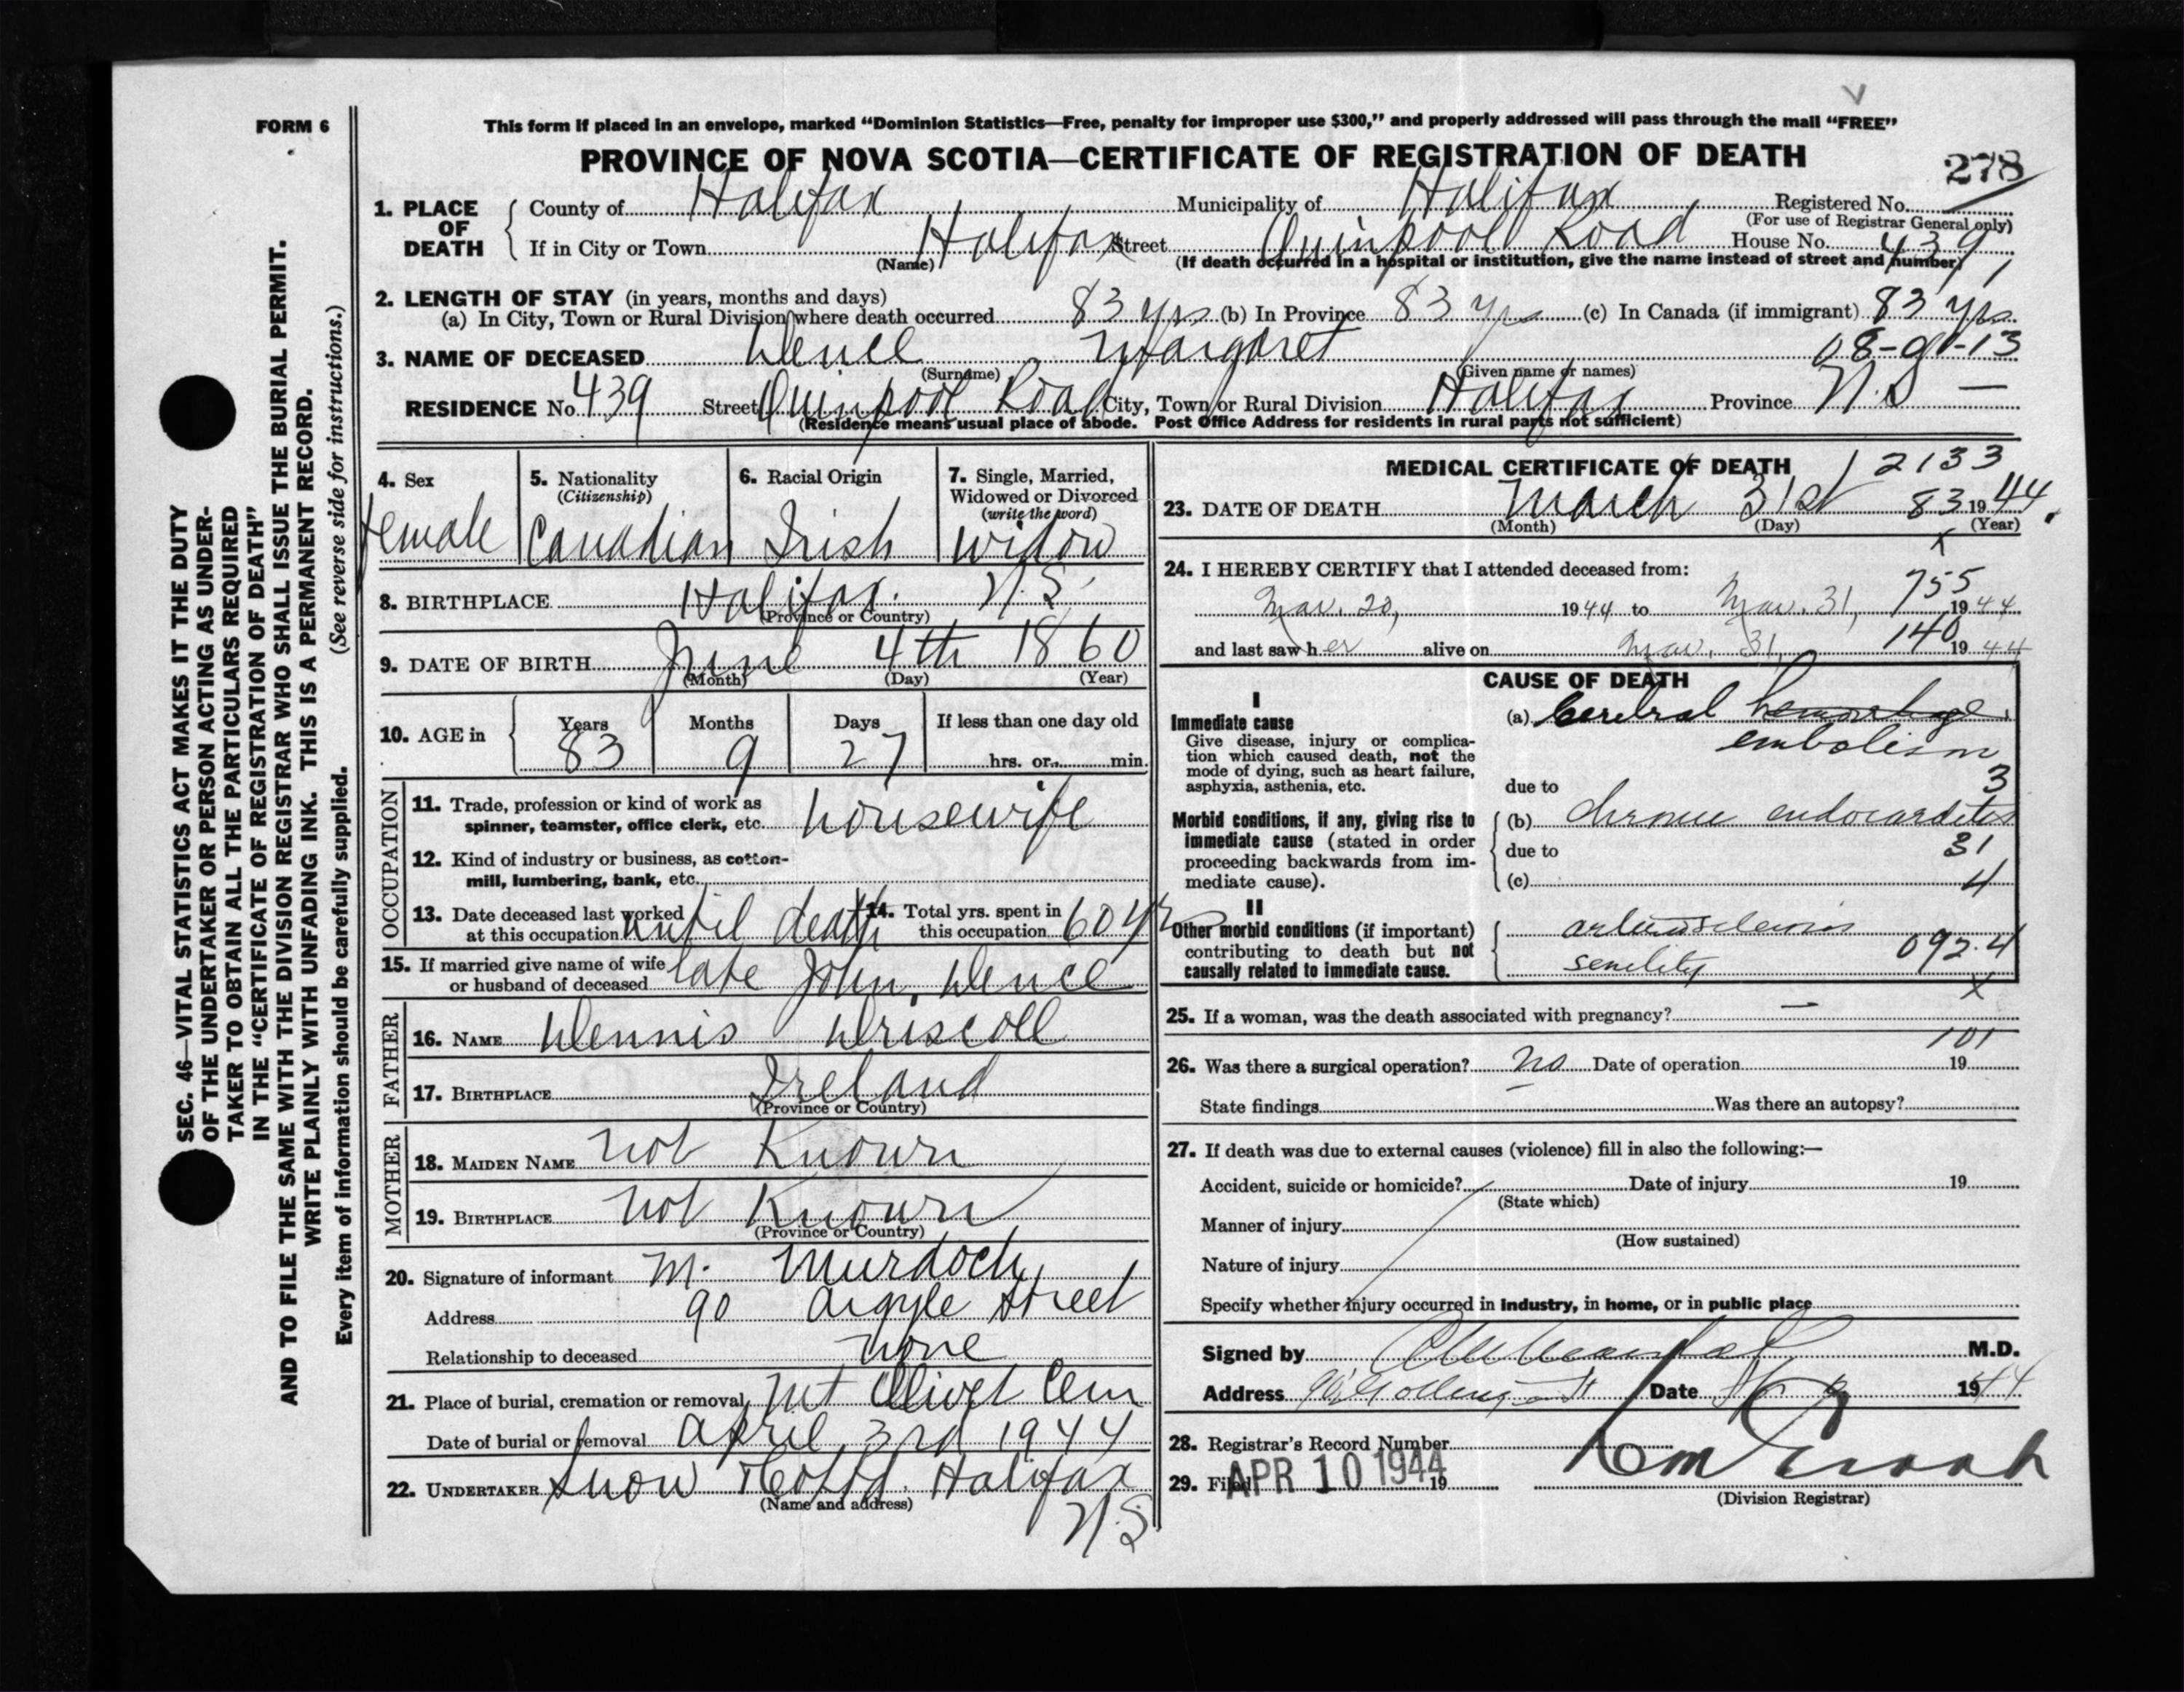 FORM 6
This form if placed in an envelope, marked “Dominion Statistics—Free, penalty for improper use $300,” and properly addressed will pass through the mail “FREE”
PROVINCE OF NOVA SCOTIA—CERTIFICATE OF REGISTRATION OF DEATH
278
1. PLACE OF DEATH
County of Halifax Municipality of Halifax Registered No.
(For use of Registrar General only)
If in City or Town Halifax Street Quinpool Road House No. 439
(Name) (If death occurred in a hospital or institution, give the name instead of street and number)
2. LENGTH OF STAY (in years, months and days)
(a) In City, Town or Rural Division where death occurred 83 yrs (b) In Province 83 yrs (c) In Canada (if immigrant) 83 yrs
3. NAME OF DECEASED Dence, Margaret 08-91-13
(Surname) (Given name or names)
RESIDENCE No. 439 Street Quinpool Road City, Town or Rural Division Halifax Province N.S —
(Residence means usual place of abode. Post Office Address for residents in rural parts not sufficient)
4. Sex
female
5. Nationality
(Citizenship)
Canadian
6. Racial Origin
Irish
7. Single, Married,
Widowed or Divorced
(write the word)
widow
8. BIRTHPLACE Halifax. N.S.
(Province or Country)
9. DATE OF BIRTH June 4th 1860
(Month) (Day) (Year)
10. AGE in
Years Months Days If less than one day old
83 9 27 hrs. or min.
OCCUPATION
11. Trade, profession or kind of work as
spinner, teamster, office clerk, etc. housewife
12. Kind of industry or business, as cotton-
mill, lumbering, bank, etc.
13. Date deceased last worked
at this occupation until death
14. Total yrs. spent in
this occupation 60 yrs
15. If married give name of wife
or husband of deceased late John. Dence
FATHER
16. NAME Dennis Driscoll
17. BIRTHPLACE Ireland
(Province or Country)
MOTHER
18. MAIDEN NAME not Known
19. BIRTHPLACE not Known
(Province or Country)
20. Signature of informant M. Murdoch
Address 90 Argyle Street
Relationship to deceased none
21. Place of burial, cremation or removal Mt Olivet Cem
Date of burial or removal April 3rd 1944
22. UNDERTAKER Snow & Co Ltd. Halifax
(Name and address)
N.S
MEDICAL CERTIFICATE OF DEATH 12133
23. DATE OF DEATH March 31st 83 1944.
(Month) (Day) (Year)
x
24. I HEREBY CERTIFY that I attended deceased from:
755
Mar. 20, 1944 to Mar. 31, 1944
140
and last saw her alive on Mar. 31, 1944
CAUSE OF DEATH
I
Immediate cause
Give disease, injury or complica-
tion which caused death, not the
mode of dying, such as heart failure,
asphyxia, asthenia, etc.
(a) Cerebral hemorrhage
embolism
3
due to
Morbid conditions, if any, giving rise to
immediate cause (stated in order
proceeding backwards from im-
mediate cause).
(b) chronic endocarditis
due to 31
(c) 4
II
Other morbid conditions (if important)
contributing to death but not
causally related to immediate cause.
arteriosclerosis
senility
092.4
x
25. If a woman, was the death associated with pregnancy? —
101
26. Was there a surgical operation? no Date of operation 19
State findings Was there an autopsy?
27. If death was due to external causes (violence) fill in also the following:—
Accident, suicide or homicide? Date of injury 19
(State which)
Manner of injury
(How sustained)
Nature of injury
Specify whether injury occurred in industry, in home, or in public place
Signed by M.D.
Address Date 1944
28. Registrar's Record Number
29. Filed APR 10 1944 19
(Division Registrar)
SEC. 46—VITAL STATISTICS ACT MAKES IT THE DUTY
OF THE UNDERTAKER OR PERSON ACTING AS UNDER-
TAKER TO OBTAIN ALL THE PARTICULARS REQUIRED
IN THE “CERTIFICATE OF REGISTRATION OF DEATH”
AND TO FILE THE SAME WITH THE DIVISION REGISTRAR WHO SHALL ISSUE THE BURIAL PERMIT.
WRITE PLAINLY WITH UNFADING INK. THIS IS A PERMANENT RECORD.
Every item of information should be carefully supplied. (See reverse side for instructions.)